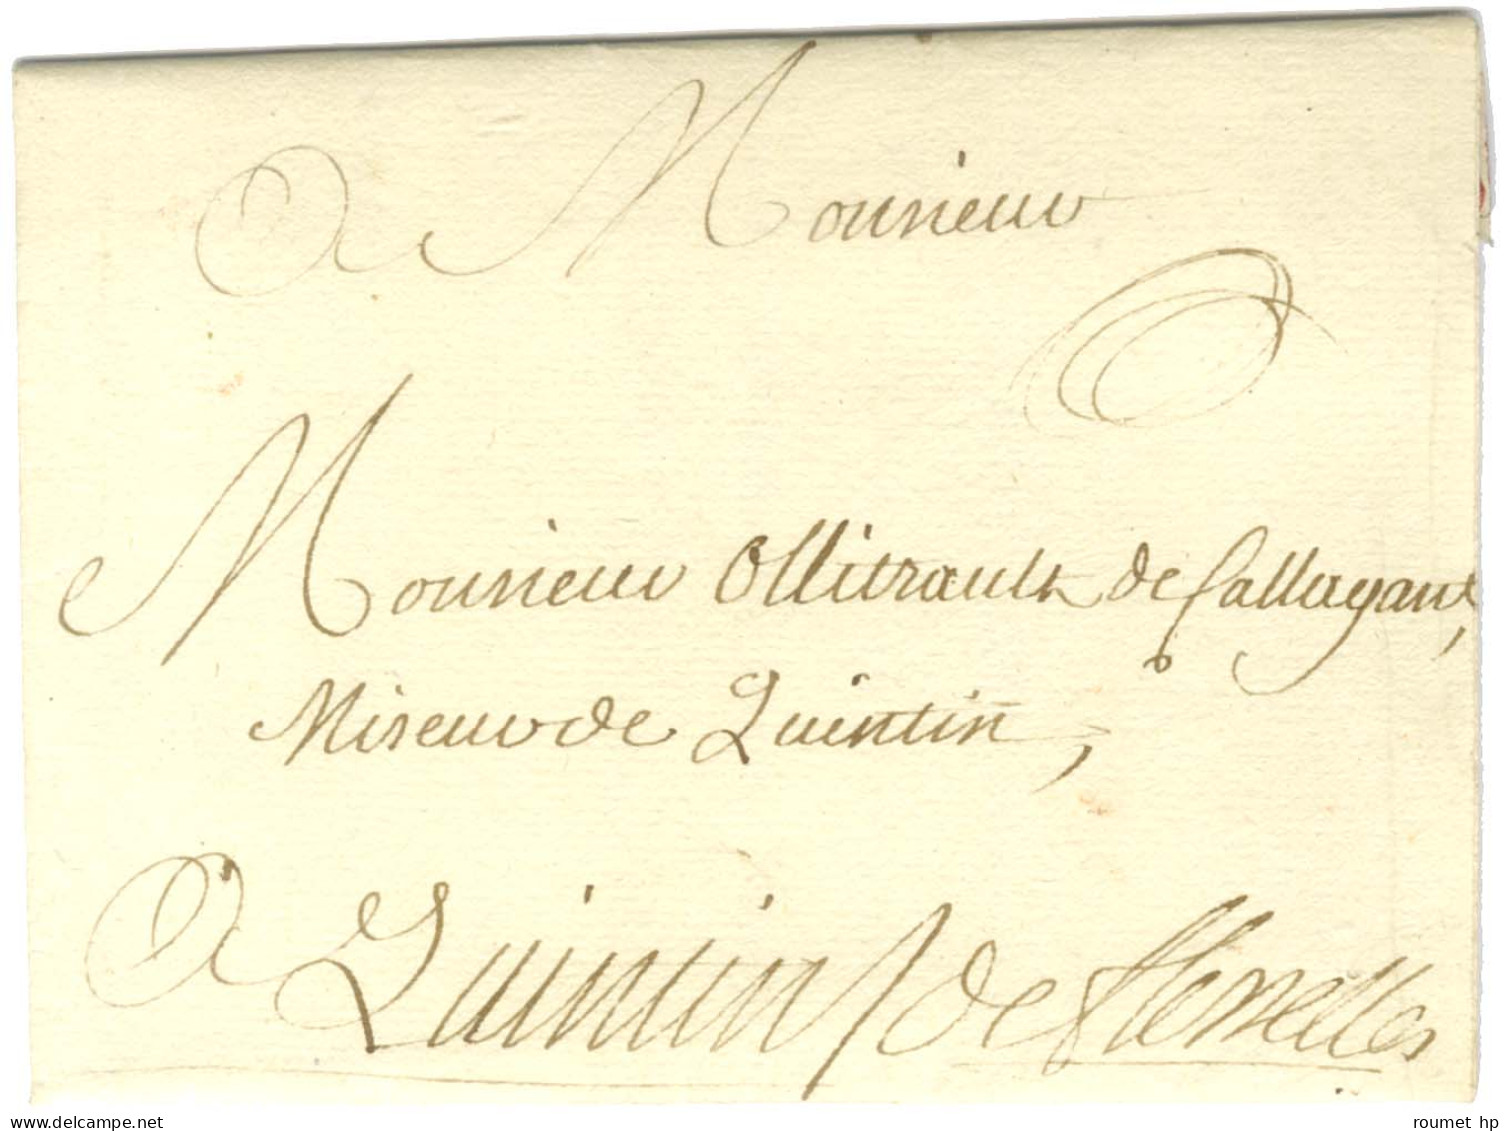 A Monsieur
Monsieur Ollitrault de
Mireur de Quintin,
A Quintin / de
delcampe.net
roumet hp